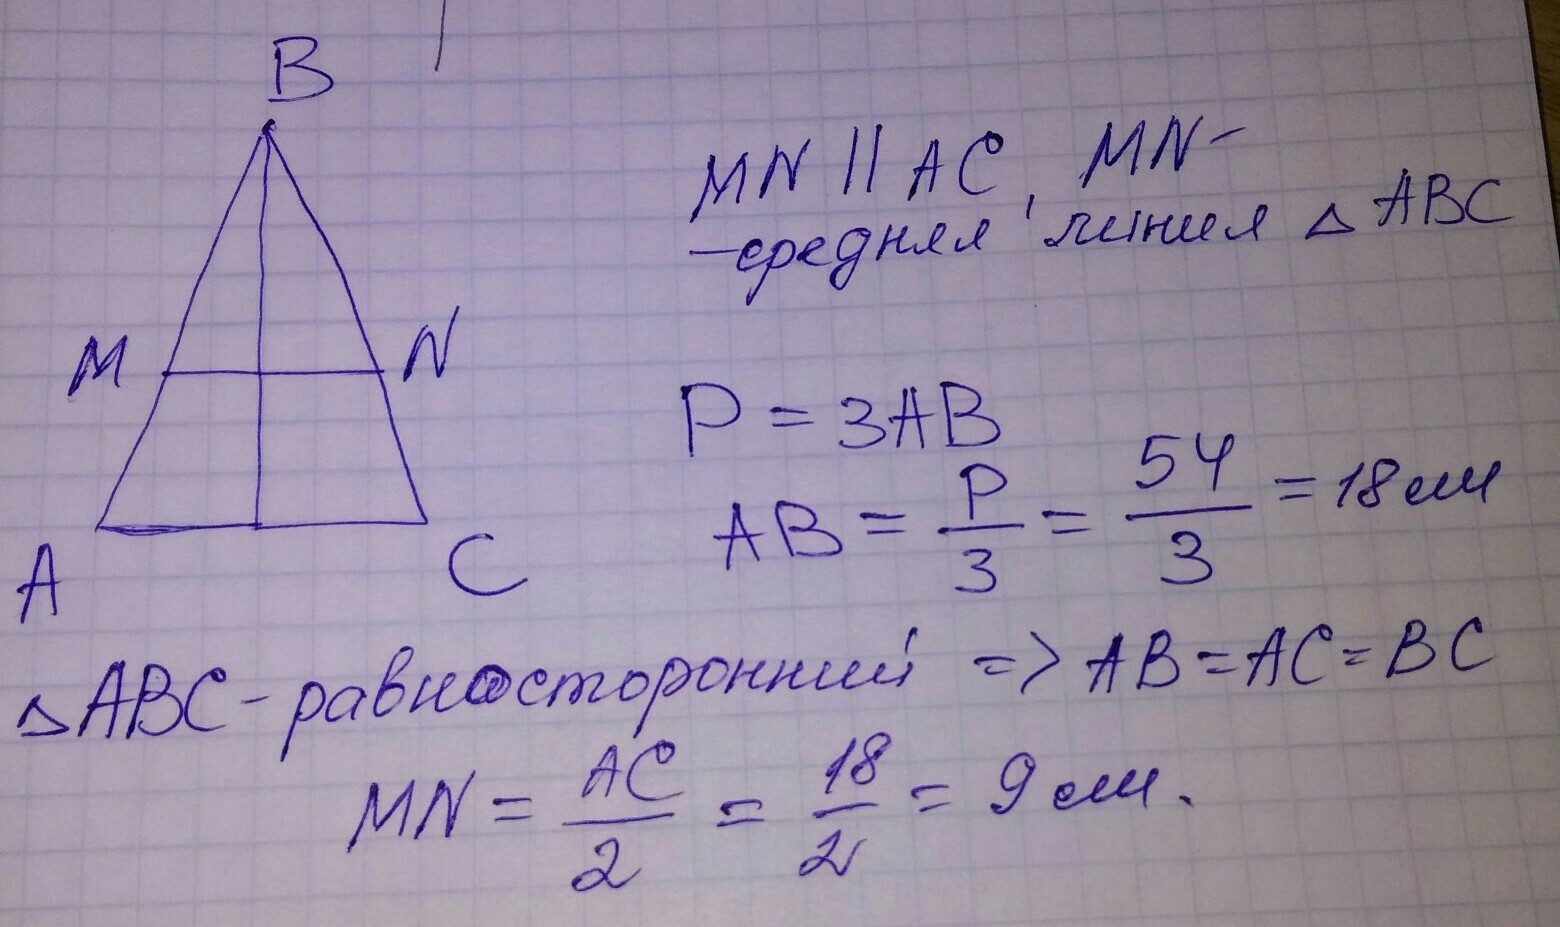 B
MN || AC, MN -
- средняя линия △ ABC
M N
P = 3AB
AB = P/3 = 54/3 = 18 см
A C
△ ABC - равносторонний => AB = AC = BC
MN = AC/2 = 18/2 = 9 см.